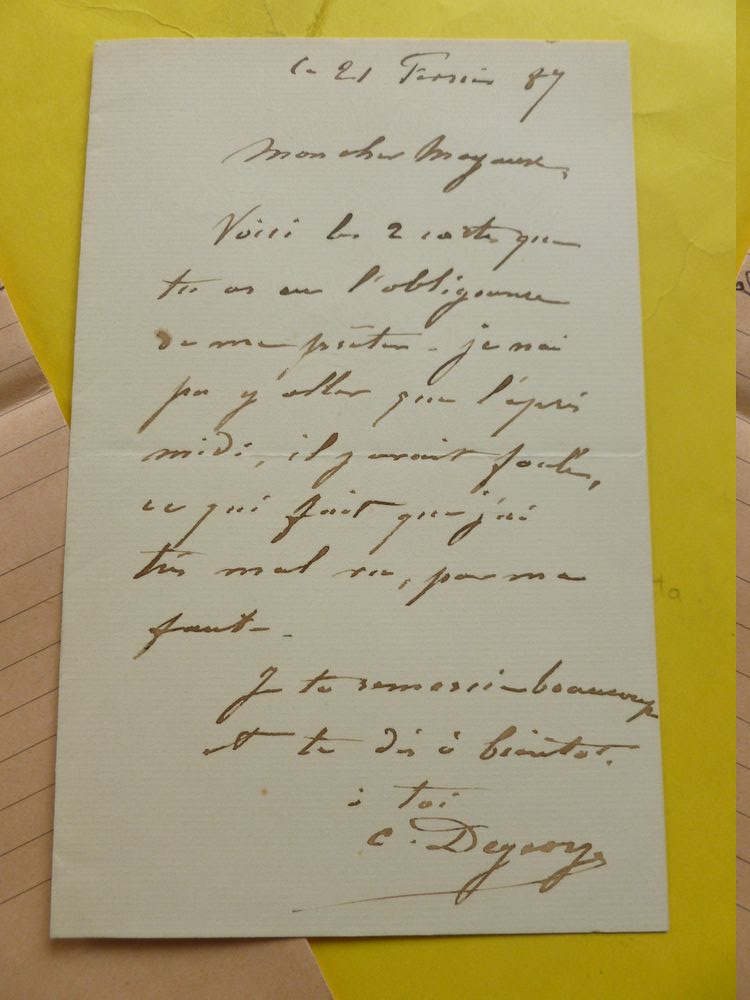 Le 21 Février 87
Mon cher Mayeux,
Voici les 2 cartes que
tu as eu l'obligeance
de me prêter. je n'ai
pu y aller que l'après
midi, il y avait foule,
ce qui fait que j'ai
très mal vu, par ma
faute.
Je te remercie beaucoup
et te dis à bientot.
à toi
C. Degeorge